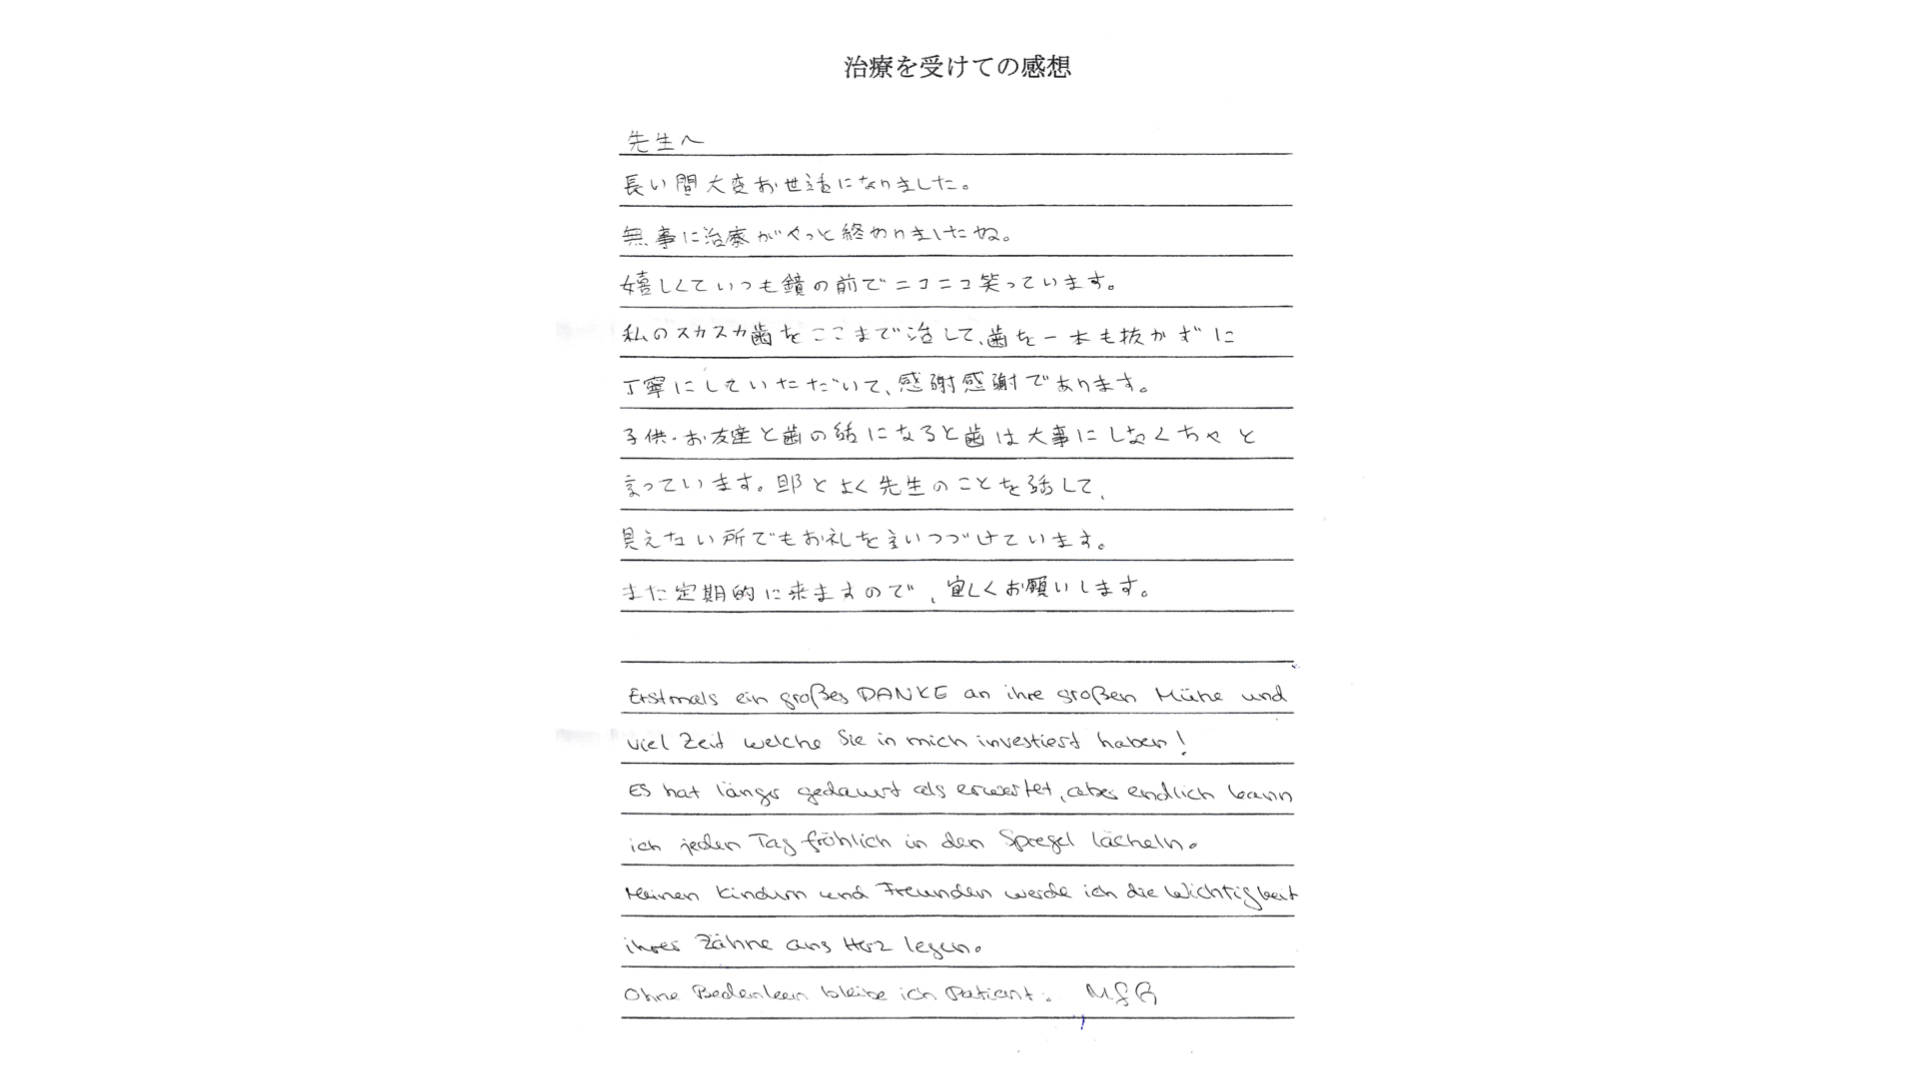 治療を受けての感想
先生へ
長い間大変お世話になりました。
無事に治療がやっと終わりましたね。
嬉しくていつも鏡の前でニコニコ笑っています。
私のスカスカ歯をここまで治して、歯を一本も抜かずに
丁寧にしていただいて、感謝感謝であります。
子供・お友達と歯の話になると歯は大事にしなくちゃと
言っています。旦那とよく先生のことを話して、
見えない所でもお礼を言いつづけています。
また定期的に来ますので、宜しくお願いします。
Erstmals ein großes DANKE an ihre großen Mühe und
viel Zeit welche Sie in mich investiert haben!
Es hat länger gedauert als erwartet, aber endlich kann
ich jeden Tag fröhlich in den Spiegel lächeln.
Meinen Kindern und Freunden werde ich die Wichtigkeit
ihrer Zähne ans Herz legen.
Ohne Bedenken bleibe ich Patient.